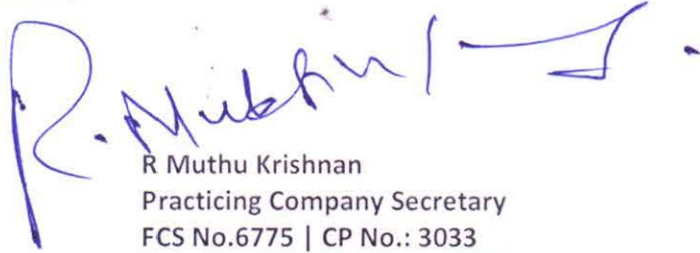 R. Muthu
R Muthu Krishnan
Practicing Company Secretary
FCS No.6775 | CP No.: 3033